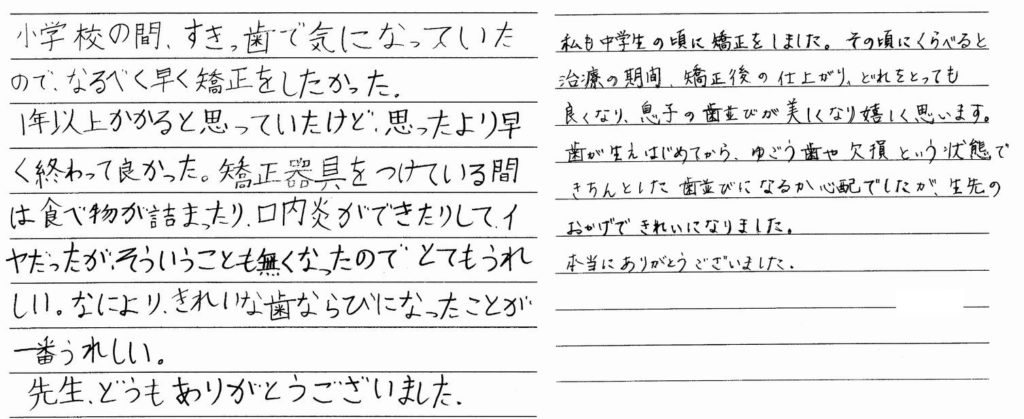 小学校の間、すきっ歯で気になっていた
ので、なるべく早く矯正をしたかった。
1年以上かかると思っていたけど、思ったより早
く終わって良かった。矯正器具をつけている間
は食べ物が詰まったり、口内炎ができたりして、イ
ヤだったが、そういうことも無くなったのでとてもうれ
しい。なにより、きれいな歯ならびになったことが
一番うれしい。
先生、どうもありがとうございました。
私も中学生の頃に矯正をしました。その頃にくらべると
治療の期間、矯正後の仕上がり、どれをとっても
良くなり、息子の歯並びが美しくなり嬉しく思います。
歯が生えはじめてから、ゆごう歯や欠損という状態で
きちんとした歯並びになるか心配でしたが、生先の
おかげできれいになりました。
本当にありがとうございました。